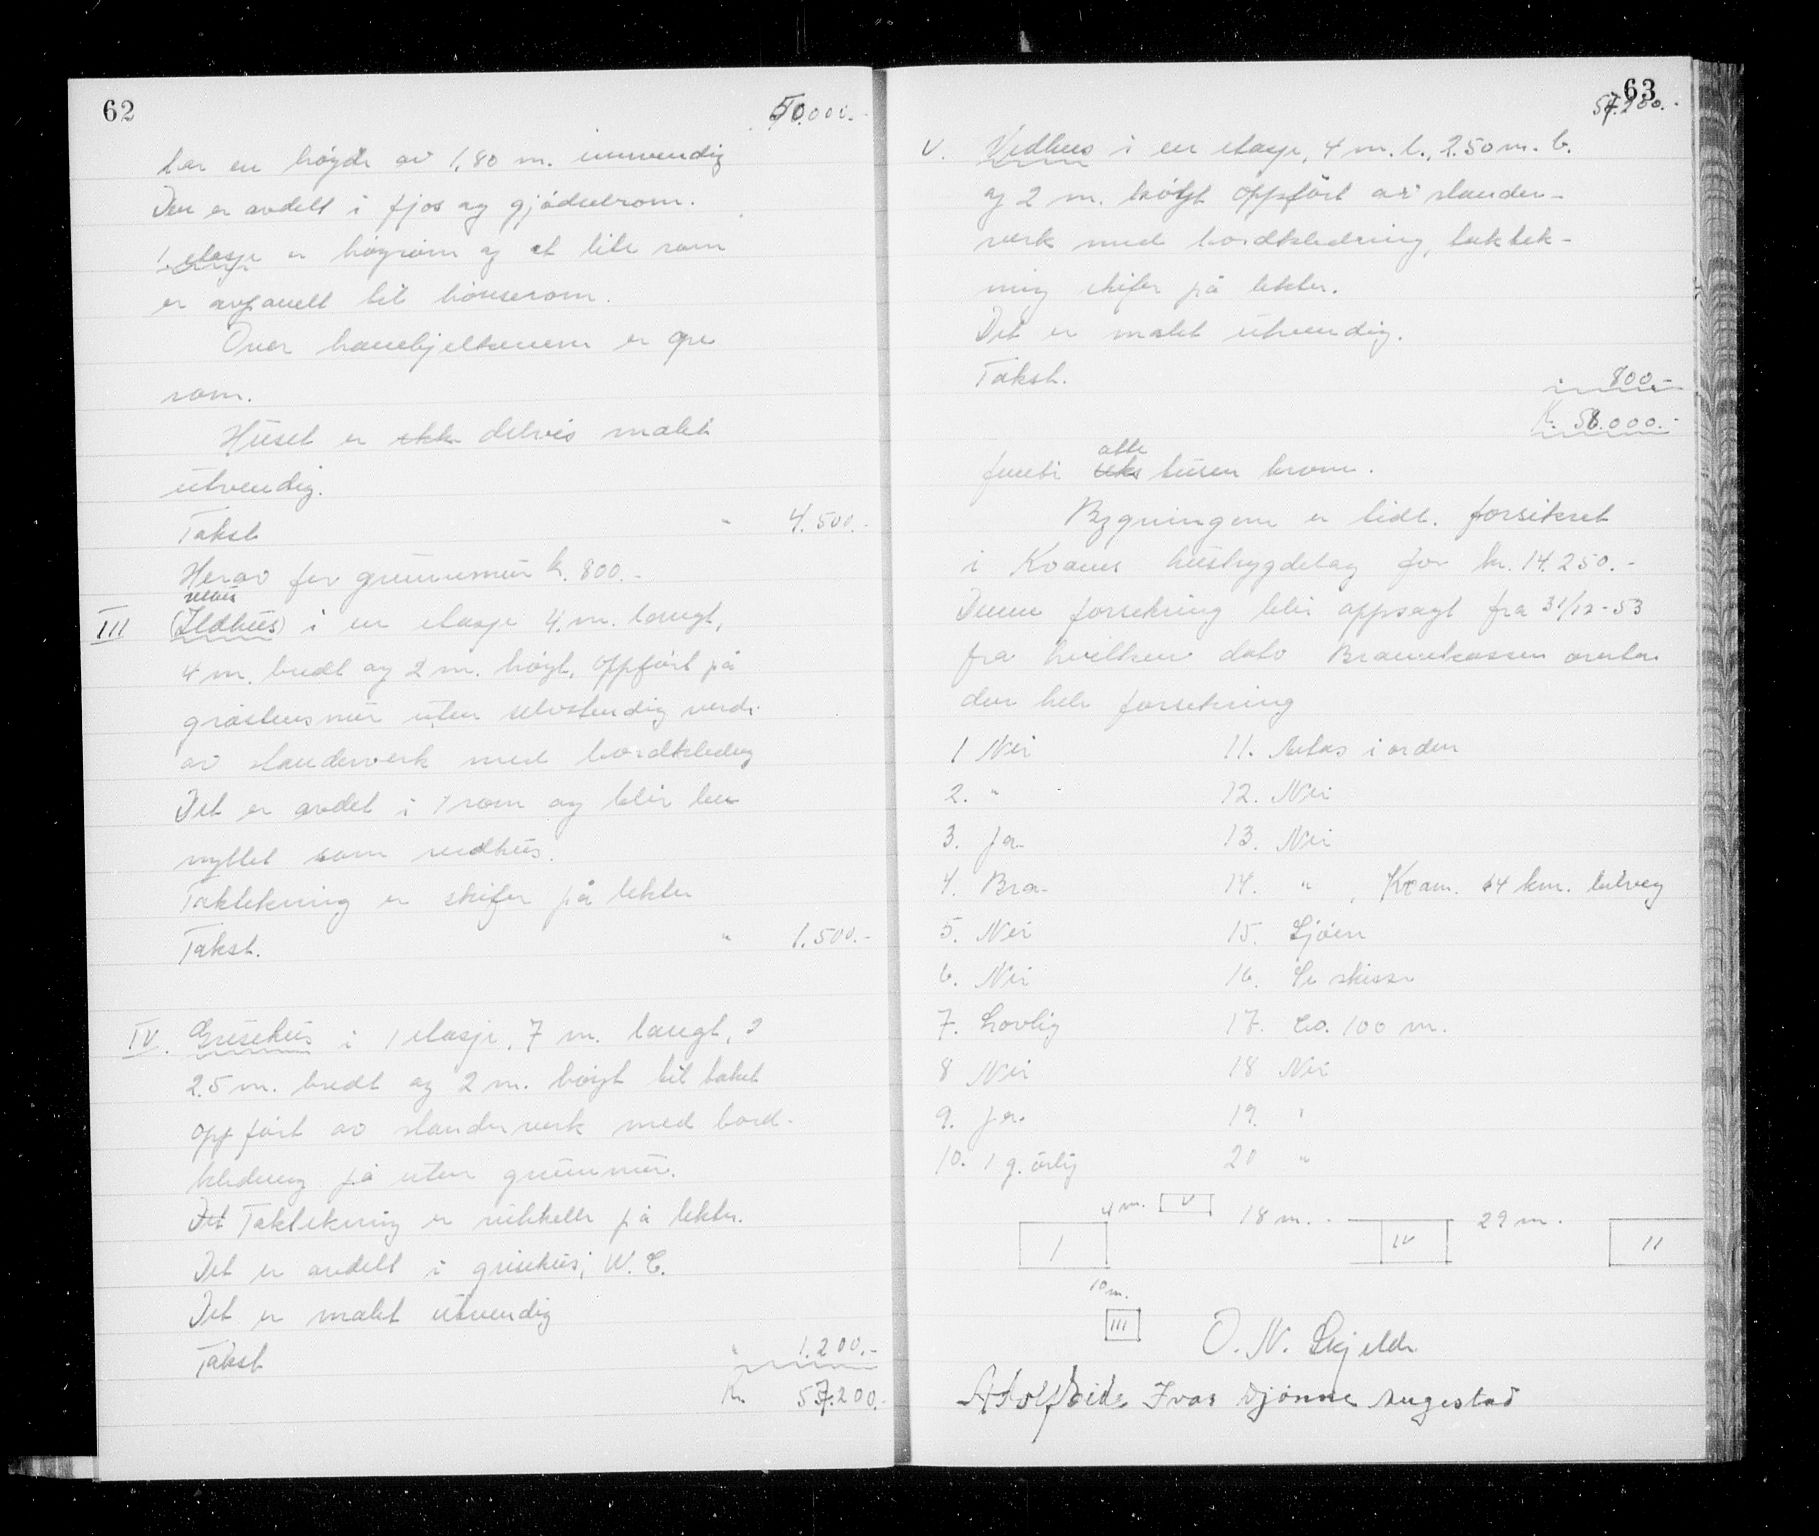 62
50.000.-
har en høyde av 1,80 m. innvendig
Den er avdelt i fjos og gjødselrom.
1 etasje er høyrom og et lite rom
er avpanelt til hønserom.
Over hanebjelkenene er ope
rom.
Huset er ikke delvis malt
utvendig.
Takst " 4.500.-
Herav for grunnmur kr. 800.-
III (Ildhus) i en etasje 4. m. langt,
4 m. bredt og 2 m. høgt, oppført på
gråsteinsmur uten selvstendig verdi
av standerverk med bordkledng
Det er avdelt i 1 rom og blir be
nyttet som vedhus.
Taktekning er skifer på lekter
Takst. " 1.500.-
IV. Grisehus i 1 etasje, 7 m. langt, 2
2.5 m. bredt og 2 m. høgt til taket
oppført av standerverk med bord-
kledning på uten grunnmur.
Det Taktekning er på lekter.
Det er avdelt i grisehus, W.C.
Det er malt utvendig
Takst " 1.200.-
Kr. 57.200.-
63
57.200.-
V. Vedhus i en etasje, 4 m. l., 2.50 m. b.
og 2 m. høgt oppført av stander-
verk med bordkledning, taktek-
ning skifer på lekter.
Det er malt utvendig.
Takst. " 800.-
K. 58.000.-
åtte
femti seks tusen kroner.
Bygningene er tidl. forsikret
i Kvams husbygdelag for kr. 14.250.-
Denne forsikring blir oppsagt fra 31/12-53
fra hvilken dato Brannkassen overtar
den hele forsikring
1 Nei 11. Avlås i orden
2. " 12. Nei
3. Ja- 13. Nei
4. Bra- 14. " , Kvam. 14 km. bilveg
5. Nei 15. Sjøen
6. Nei 16. Se skisse
7. Lovlig 17. Ca. 100 m.
8 Nei 18 Nei
9. Ja. 19. "
10. 1 g. årlig 20 "
4 m. V 18 m. 29 m.
I IV II
10 m.
III
O. N. Skjelde
Adolf Seide Ivar Djønne Augestad